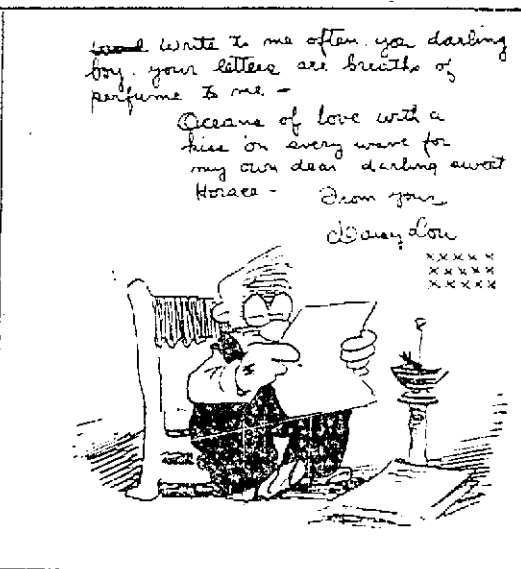 Write to me often you darling
boy. your letters are breaths of
perfume to me -
Oceans of love with a
kiss on every wave for
my own dear darling sweet
Horace - From your
Daisy Lou
x x x x x
x x x x x
x x x x x